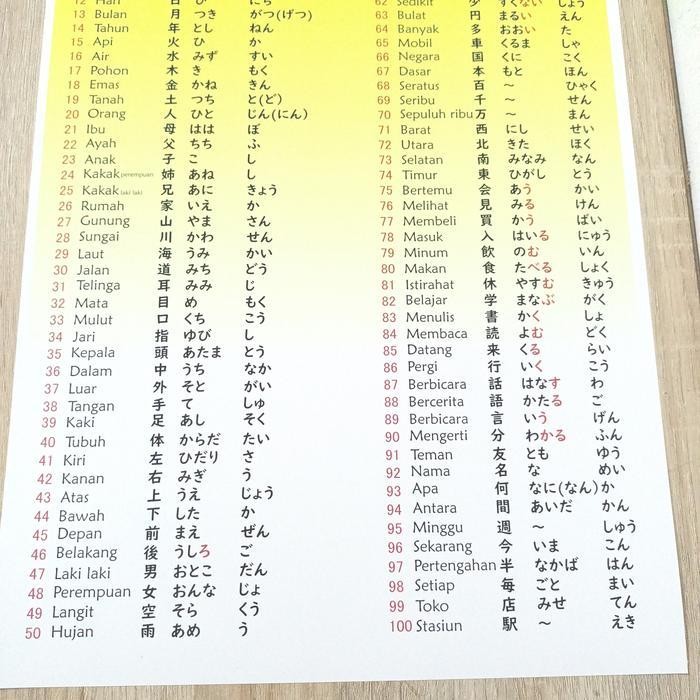 12 Hari 日 ひ にち
13 Bulan 月 つき がつ(げつ)
14 Tahun 年 とし ねん
15 Api 火 ひ か
16 Air 水 みず すい
17 Pohon 木 き もく
18 Emas 金 かね きん
19 Tanah 土 つち と(ど)
20 Orang 人 ひと じん(にん)
21 Ibu 母 はは ぼ
22 Ayah 父 ちち ふ
23 Anak 子 こ し
24 Kakak perempuan 姉 あね し
25 Kakak laki laki 兄 あに きょう
26 Rumah 家 いえ か
27 Gunung 山 やま さん
28 Sungai 川 かわ せん
29 Laut 海 うみ かい
30 Jalan 道 みち どう
31 Telinga 耳 みみ じ
32 Mata 目 め もく
33 Mulut 口 くち こう
34 Jari 指 ゆび し
35 Kepala 頭 あたま とう
36 Dalam 中 うち なか
37 Luar 外 そと がい
38 Tangan 手 て しゅ
39 Kaki 足 あし そく
40 Tubuh 体 からだ たい
41 Kiri 左 ひだり さ
42 Kanan 右 みぎ う
43 Atas 上 うえ じょう
44 Bawah 下 した か
45 Depan 前 まえ ぜん
46 Belakang 後 うしろ ご
47 Laki laki 男 おとこ だん
48 Perempuan 女 おんな じょ
49 Langit 空 そら くう
50 Hujan 雨 あめ う
62 Sedikit 少 すくない しょう
63 Bulat 円 まるい えん
64 Banyak 多 おおい た
65 Mobil 車 くるま しゃ
66 Negara 国 くに こく
67 Dasar 本 もと ほん
68 Seratus 百 ~ ひゃく
69 Seribu 千 ~ せん
70 Sepuluh ribu 万 ~ まん
71 Barat 西 にし せい
72 Utara 北 きた ほく
73 Selatan 南 みなみ なん
74 Timur 東 ひがし とう
75 Bertemu 会 あう かい
76 Melihat 見 みる けん
77 Membeli 買 かう ばい
78 Masuk 入 はいる にゅう
79 Minum 飲 のむ いん
80 Makan 食 たべる しょく
81 Istirahat 休 やすむ きゅう
82 Belajar 学 まなぶ がく
83 Menulis 書 かく しょ
84 Membaca 読 よむ どく
85 Datang 来 くる らい
86 Pergi 行 いく こう
87 Berbicara 話 はなす わ
88 Bercerita 語 かたる ご
89 Berbicara 言 いう げん
90 Mengerti 分 わかる ふん
91 Teman 友 とも ゆう
92 Nama 名 な めい
93 Apa 何 なに(なん) か
94 Antara 間 あいだ かん
95 Minggu 週 ~ しゅう
96 Sekarang 今 いま こん
97 Pertengahan 半 なかば はん
98 Setiap 毎 ごと まい
99 Toko 店 みせ てん
100 Stasiun 駅 ~ えき